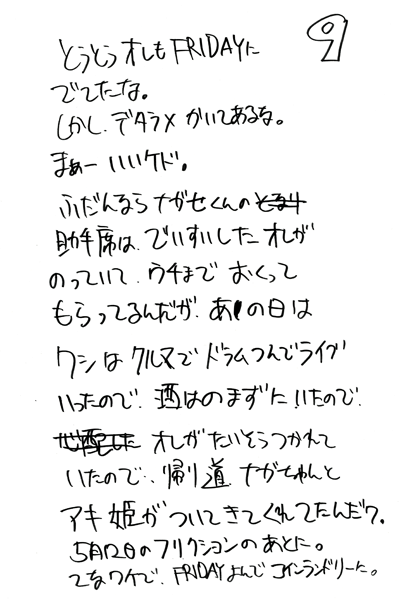 9
とうとうオレもFRIDAYに
でてたな。
しかし、デタラメかいてあるな。
まぁーいいケド。
ふだんならナガセくんの
助手席は、でいすいしたオレが
のっていて、ウチまでおくって
もらってるんだが、あの日は
ワシはクルマでドラムつんでライブ
いったので、酒はのまずにいたので、
オレがたいそうつかれて
いたので、帰り道、ナガちゃんと
アキ姫がついてきてくれてたんだワ。
5月12日のフリクションのあとに。
てなワケで、FRIDAYよんでコインランドリーに。